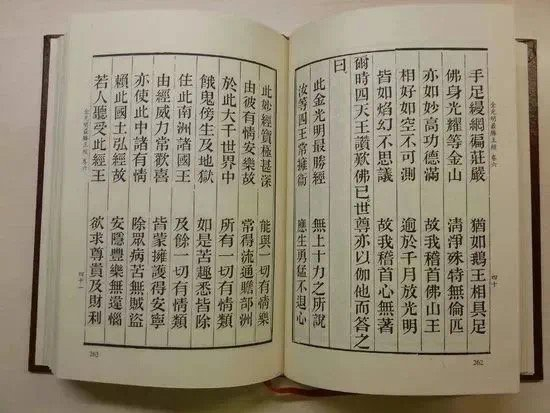 金光明最勝王經 卷六
四十
手足縵網徧莊嚴　猶如鵝王相具足
佛身光耀等金山　清淨殊特無倫匹
亦如妙高功德滿　故我稽首佛山王
相好如空不可測　逾於千月放光明
皆如焰幻不思議　故我稽首心無著
爾時四天王讚歎佛已世尊亦以伽他而答之
曰
此金光明最勝經　無上十力之所說
汝等四王常擁衞　應生勇猛不退心
262
此妙經寶極甚深　能與一切有情樂
由彼有情安樂故　常得流通贍部洲
於此大千世界中　所有一切有情類
餓鬼傍生及地獄　如是苦趣悉皆除
住此南洲諸國王　及餘一切有情類
由經威力常歡喜　皆蒙擁護得安寧
亦使此中諸有情　除眾病苦無賊盜
賴此國土弘經故　安隱豐樂無違惱
若人聽受此經王　欲求尊貴及財利
金光明最勝王經 卷六
四十一
263